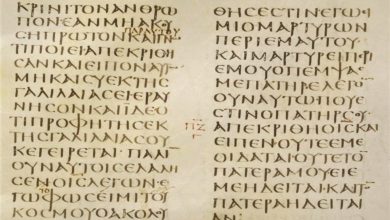 ΚΡΙΝΙΤΟΝΑΝΘΡΩ
ΠΟΝΕΑΝΜΗΑΚΟΥ
ϹΗΠΡΩΤΟΝ
ΤΙΠΟΙΕΙΑΠΕΚΡΙΘΗ
ϹΑΝΚΑΙΕΙΠΟΝΑΥ
ΜΗΚΑΙϹΥΕΚΤΗϹ
ΓΑΛΙΛΑΙΑϹΕΙΕΡΑΥ
ΝΗϹΟΝΚΑΙΙΔΕΟ
ΤΙΠΡΟΦΗΤΗϹΕΚ
ΤΗϹΓΑΛΙΛΑΙΑϹΟΥ
ΚΕΓΕΙΡΕΤΑΙΠΑΛΙ
ΟΥΝΑΥΤΟΙϹΕΛΑΛΗ
ϹΕΝΟΙϹΛΕΓΩΝΕ
ΓΩΦΩϹΕΙΜΙΤΟΥ
ΚΟϹΜΟΥΟΑΚΟΛΟΥ
ΘΗϹΕϹΤΙΝΕΓΩΕΙ
ΜΙΟΜΑΡΤΥΡΩΝ
ΠΕΡΙΕΜΑΥΤΟΥ
ΚΑΙΜΑΡΤΥΡΕΙΠΕΡΙ
ΕΜΟΥΟΠΕΜΨΑϹ
ΜΕΠΑΤΗΡΕΛΕΓΟ
ΟΥΝΑΥΤΩΠΟΥΕ
ϹΤΙΝΟΠΑΤΗΡϹΟΥ
ΑΠΕΚΡΙΘΗΟΙϹΚΑΙ
ΕΙΠΕΝΟΥΤΕΕΜΕ
ΟΙΔΑΤΑΙΟΥΤΕΤΟ
ΠΑΤΕΡΑΜΟΥΕΙΕ
ΜΕΗΔΕΙΤΑΙΚΑΙΤΟ
ΠΑΤΕΡΑΗΔΕΙΤΑΙ
ΑΝ